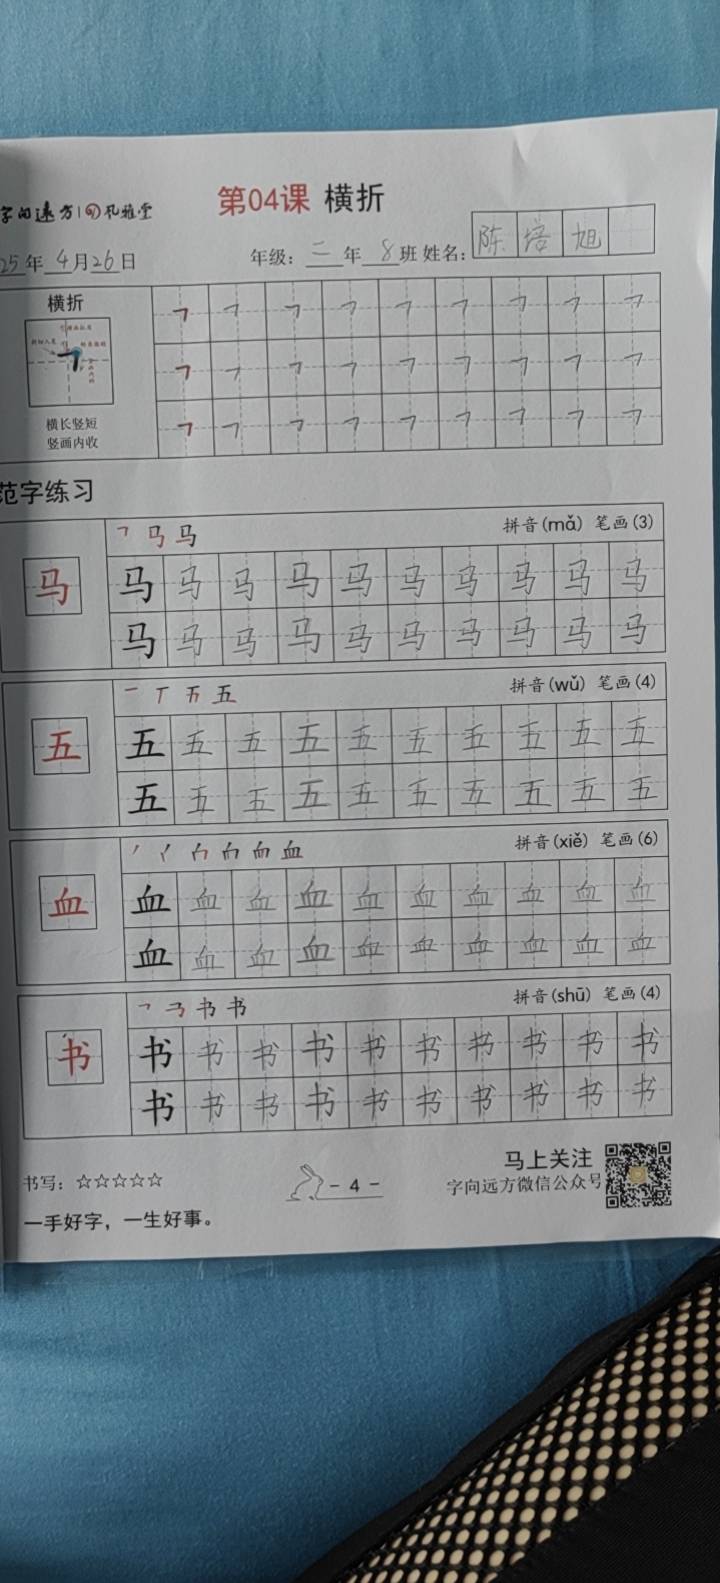 字向远方 孔雅堂
第04课 横折
25年4月26日 年级：三年8班 姓名：陈培旭
横折
横长竖短
竖画内收
范字练习
拼音(mǎ) 笔画(3)
马 马 马 马 马 马 马 马 马 马 马
马 马 马 马 马 马 马 马 马 马
拼音(wǔ) 笔画(4)
五 五 五 五 五 五 五 五 五 五 五
五 五 五 五 五 五 五 五 五 五
拼音(xiě) 笔画(6)
血 血 血 血 血 血 血 血 血 血 血
血 血 血 血 血 血 血 血 血 血
拼音(shū) 笔画(4)
书 书 书 书 书 书 书 书 书 书 书
书 书 书 书 书 书 书 书 书 书
书写：☆☆☆☆☆
- 4 -
马上关注
字向远方微信公众号
一手好字，一生好事。